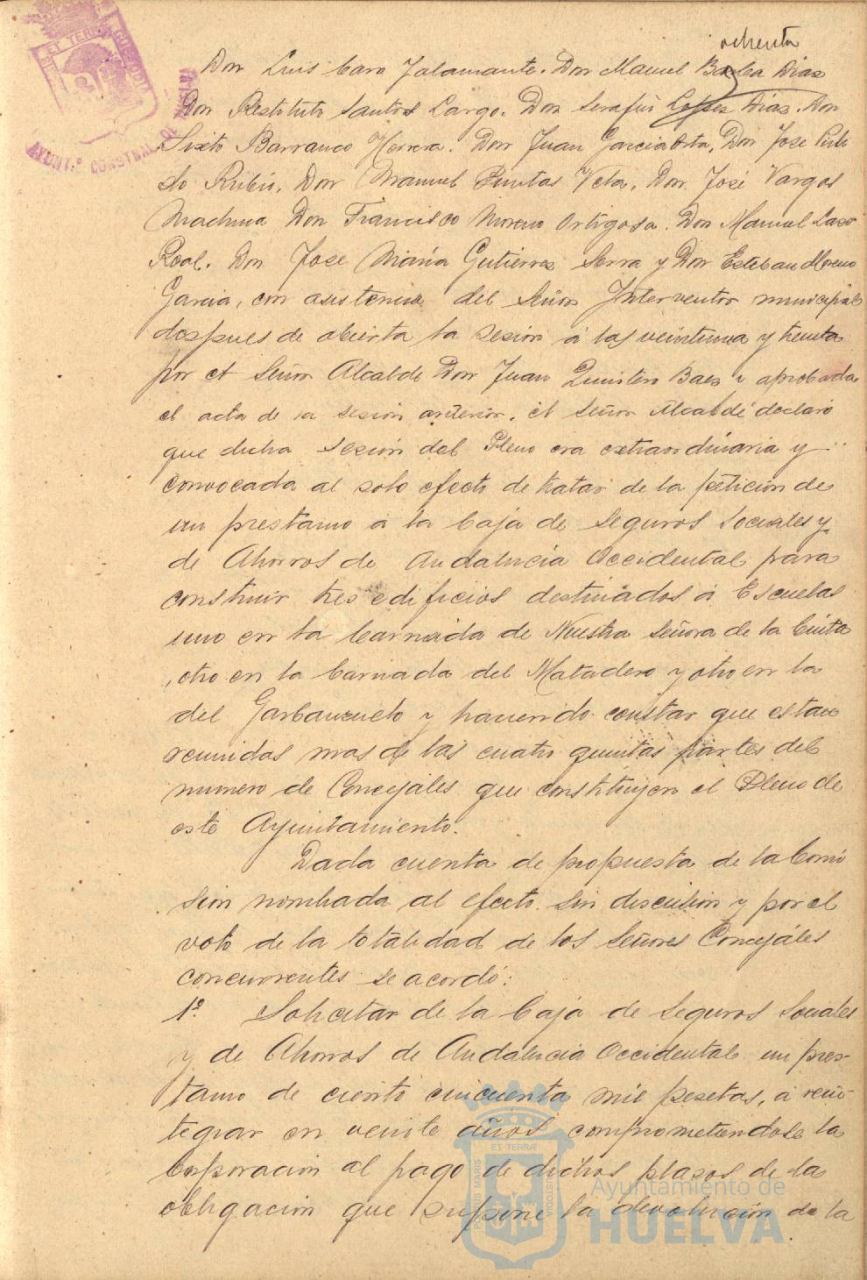 ochenta
Don Luis Caro Talamante. Don Manuel Barba Dias
Don Restituto Santos Largo. Don Serafin Lopez Dias. Don
Sixto Barranco Herrera. Don Juan Garcia Orta, Don Jose Puli
do Rubio. Don Manuel Puntas Vela. Don José Vargas
Machuca Don Francisco Moreno Ortigosa. Don Manuel Laso
Real. Don Jose Maria Gutierrez Serra y Don Esteban Moreno
Garcia, con asistencia del Señor Interventor municipal
despues de abierta la sesion á las veintiuna y treinta
por el Señor Alcalde Don Juan Quintero Baez y aprobada
el acta de la sesion anterior. el Señor Alcalde declaró
que dicha sesion del Pleno era extraordinaria y
convocada al solo efecto de tratar de la petición de
un prestamo á la Caja de Seguros Sociales y
de Ahorros de Andalucia Occidental para
construir tres edificios destinados á Escuelas
uno en la barriada de Nuestra Señora de la Cinta
, otro en la barriada del Matadero y otro en la
del Garbanzuelo y haciendo constar que estan
reunidos mas de las cuatro quintas partes del
numero de Concejales que constituyen el Pleno de
este Ayuntamiento.
Dada cuenta de propuesta de la Comi
sion nombrada al efecto sin discusion y por el
voto de la totalidad de los Señores Concejales
concurrentes se acordó:
1º Solicitar de la Caja de Seguros Sociales
y de Ahorros de Andalucia Occidental un pres-
tamo de ciento cincuenta mil pesetas, á rein-
tegrar en veinte años comprometiendose la
Corporacion al pago de dichos plazos de la
obligación que supone la devolución de la
Ayuntamiento de
HUELVA